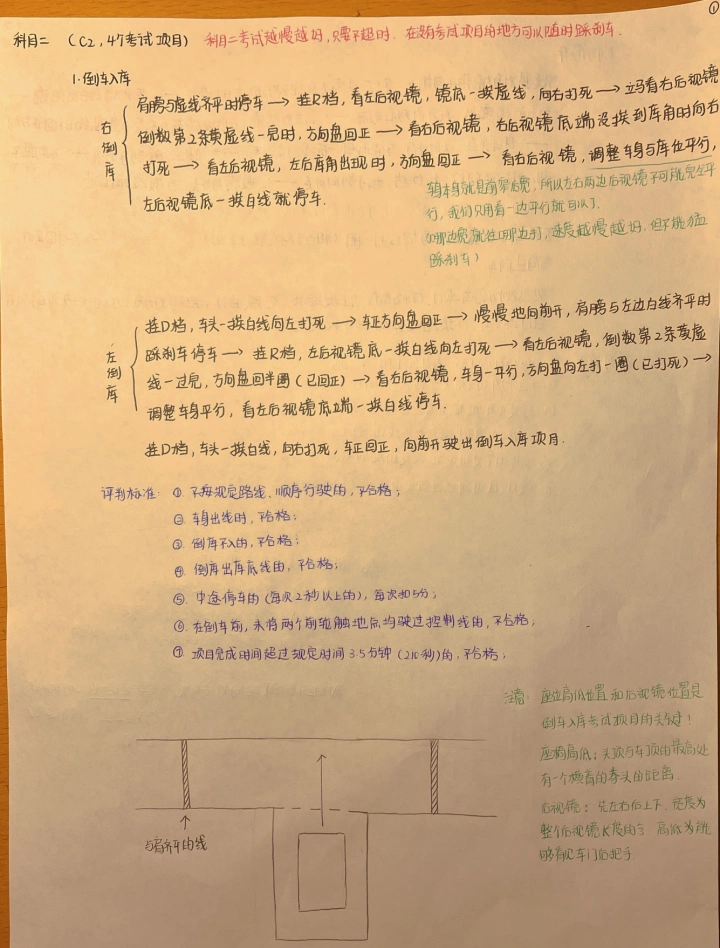 ①
科目二 （C2，4个考试项目） 科目二考试越慢越好，只要不超时．在没有考试项目的地方可以随时踩刹车．
1.倒车入库
右倒库
肩膀与虚线齐平时停车→挂R档，看左后视镜，镜底一挨虚线，向右打死→立马看右后视镜，
倒数第2条黄虚线一完时，方向盘回正→看右后视镜，右后视镜底端没挨到库角时向右
打死→看左后视镜，左后库角出现时，方向盘回正→看右后视镜，调整车身与库位平行，
左后视镜底一挨白线就停车．
车本身就是前窄后宽，所以左右两边后视镜不可能完全平
行，我们只用看一边平行就可以了．
（哪边宽就往哪边打，速度越慢越好，但不能猛
踩刹车）
左倒库
挂D档，车头一挨白线向左打死→车正方向盘回正→慢慢地向前开，肩膀与左边白线齐平时
踩刹车停车→挂R档，左后视镜底一挨白线向左打死→看左后视镜，倒数第2条黄虚
线一过完，方向盘回半圈（已回正）→看右后视镜，车身一平行，方向盘向左打一圈（已打死）→
调整车身平行，看左后视镜底端一挨白线停车．
挂D档，车头一挨白线，向右打死，车正回正，向前开驶出倒车入库项目．
评判标准：① 不按规定路线、顺序行驶的，不合格；
② 车身出线时，不合格；
③ 倒库不入的，不合格；
④ 倒库出库底线的，不合格；
⑤ 中途停车的（每次2秒以上的），每次扣5分；
⑥ 在倒车前，未将两个前轮触地点均驶过控制线的，不合格；
⑦ 项目完成时间超过规定时间3.5分钟（210秒）的，不合格；
注意：座位高低位置和后视镜位置是
倒车入库考试项目的关键！
座椅高低：头顶与车顶的最高处
有一个横着的拳头的距离．
后视镜：先左右后上下．宽度为
整个后视镜长度的 高低为能
够看见车门后把手
与肩齐平的线